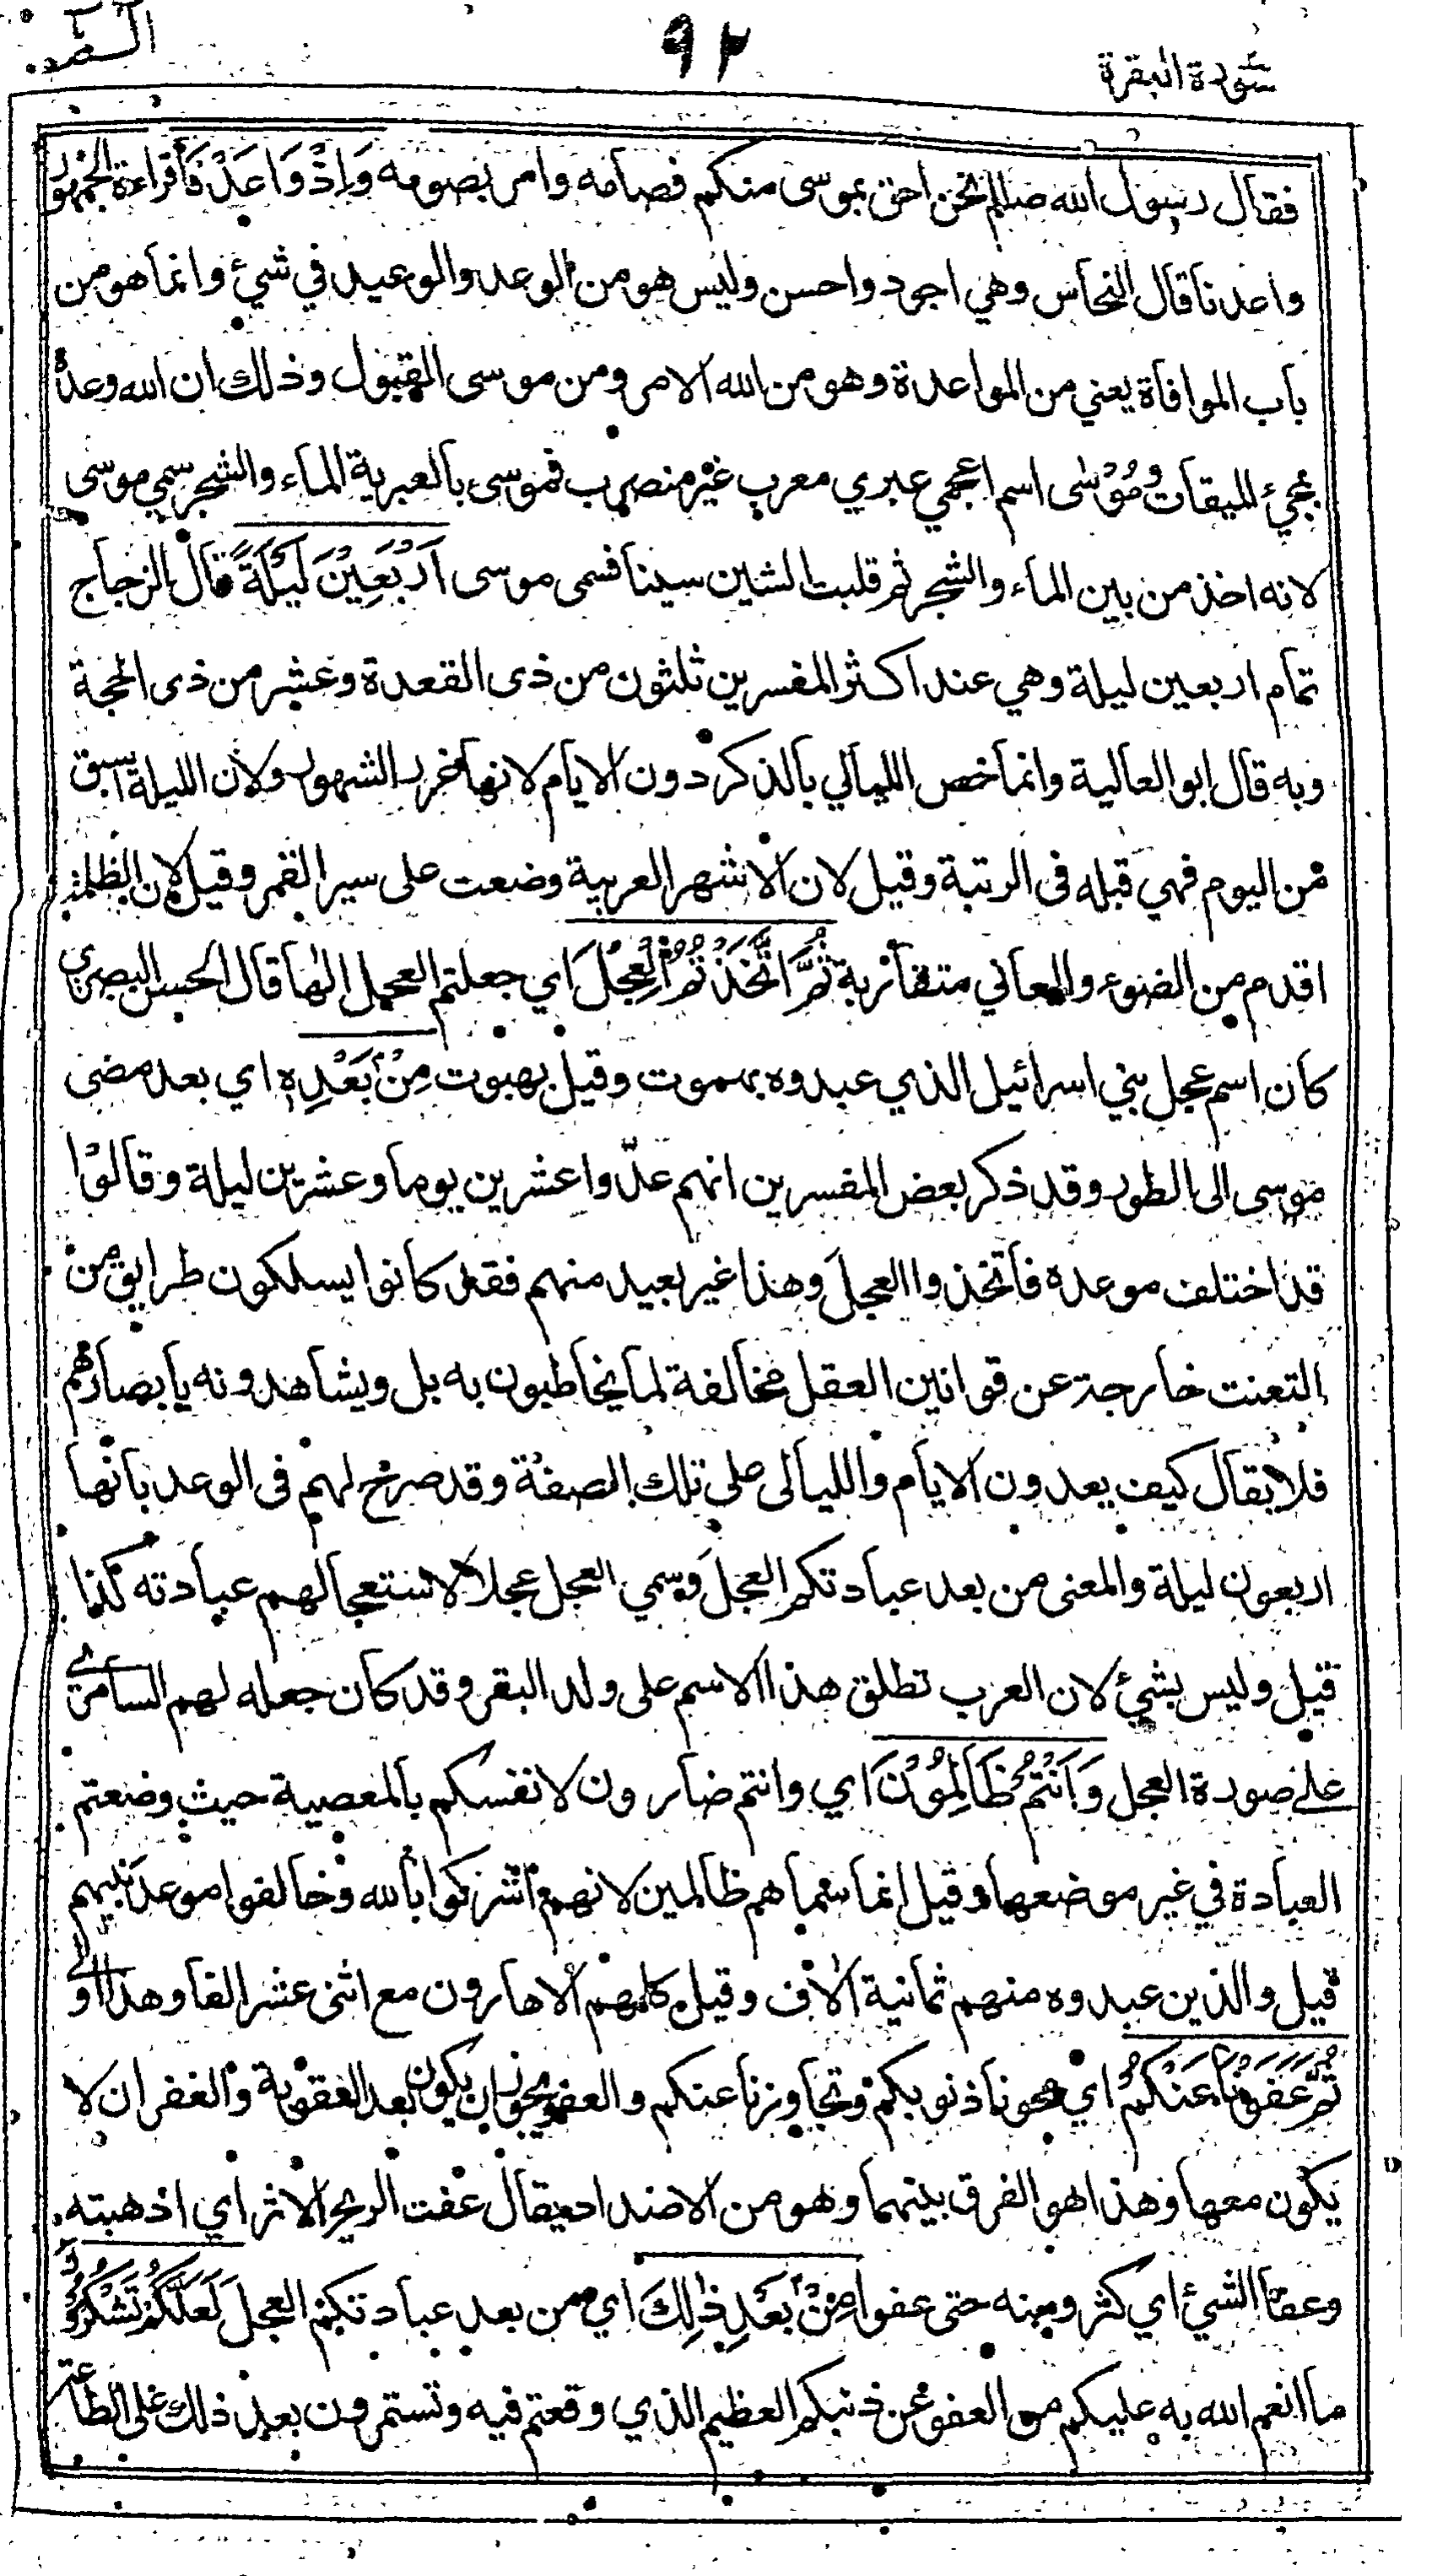 سورة البقرة
٩٢
فقال رسول الله صللم نحن احق بموسى منكم فصامه وامر بصومه وَاِذْ وَاعَدْنَا قراءة الجمهور
واعدنا قال النحاس وهي اجود واحسن وليس هو من الوعد والوعيد في شيئ وانما هو من
باب الموافاة يعني من المواعدة وهو من الله الامر ومن موسى القبول وذلك ان الله وعده
بمجيئ للميقات ومُوْسٰى اسم اعجمي عبري معرب غير منصرف فموسى بالعبرية الماء والشجر سمي موسى
لانه اخذ من بين الماء والشجر ثم قلبت الشين سينا فسمى موسى اَرْبَعِيْنَ لَيْلَةً قال الزجاج
تمام اربعين ليلة وهي عند اكثر المفسرين ثلثون من ذى القعدة وعشر من ذى الحجة
وبه قال ابو العالية وانما خص الليالي بالذكر دون الايام لانها غرر الشهور ولان الليلة اسبق
من اليوم فهي قبله فى الرتبة وقيل لان الاشهر العربية وضعت على سير القمر وقيل لان الظلمة
اقدم من الضوء والمعاني متقاربة ثُمَّ اتَّخَذْتُمُ الْعِجْلَ اي جعلتم العجل الٰها قال الحسن البصري
كان اسم عجل بني اسرائيل الذي عبدوه بهموت وقيل بهبوت مِنْ بَعْدِهٖ اي بعد مضى
موسى الى الطور وقد ذكر بعض المفسرين انهم عدّوا عشرين يوما وعشرين ليلة وقالوا
قد اختلف موعده فاتخذوا العجل وهذا غير بعيد منهم فقد كانوا يسلكون طرايق من
التعنت خارجة عن قوانين العقل مخالفة لما يخاطبون به بل ويشاهدونه بابصارهم
فلا يقال كيف يعدون الايام والليالى على تلك الصفة وقد صرح لهم فى الوعد بانها
اربعون ليلة والمعنى من بعد عبادتكم العجل وسمي العجل عجلا لاستعجالهم عبادته كذا
قيل وليس بشيئ لان العرب تطلق هذا الاسم على ولد البقر وقد كان جعله لهم السامري
على صورة العجل وَاَنْتُمْ ظَالِمُوْنَ اي وانتم ضارون لانفسكم بالمعصية حيث وضعتم
العبادة في غير موضعها وقيل انما سماهم ظالمين لانهم اشركوا بالله وخالفوا موعد نبيهم
قيل والذين عبدوه منهم ثمانية الاف وقيل كلهم الا هارون مع اثنى عشر الفا وهذا اولى
ثُمَّ عَفَوْنَا عَنْكُمْ اي محونا ذنوبكم وتجاوزنا عنكم والعفو يجوز ان يكون بعد العقوبة والغفران لا
يكون معها وهذا هو الفرق بينهما وهو من الاضداد يقال عفت الريح الاثر اي اذهبته
وعفا الشيئ اي كثر ومنه حتى عفوا مِنْ بَعْدِ ذٰلِكَ اي من بعد عبادتكم العجل لَعَلَّكُمْ تَشْكُرُوْنَ
ما انعم الله به عليكم من العفو عن ذنبكم العظيم الذي وقعتم فيه وتستمرون بعد ذلك على الطاعة